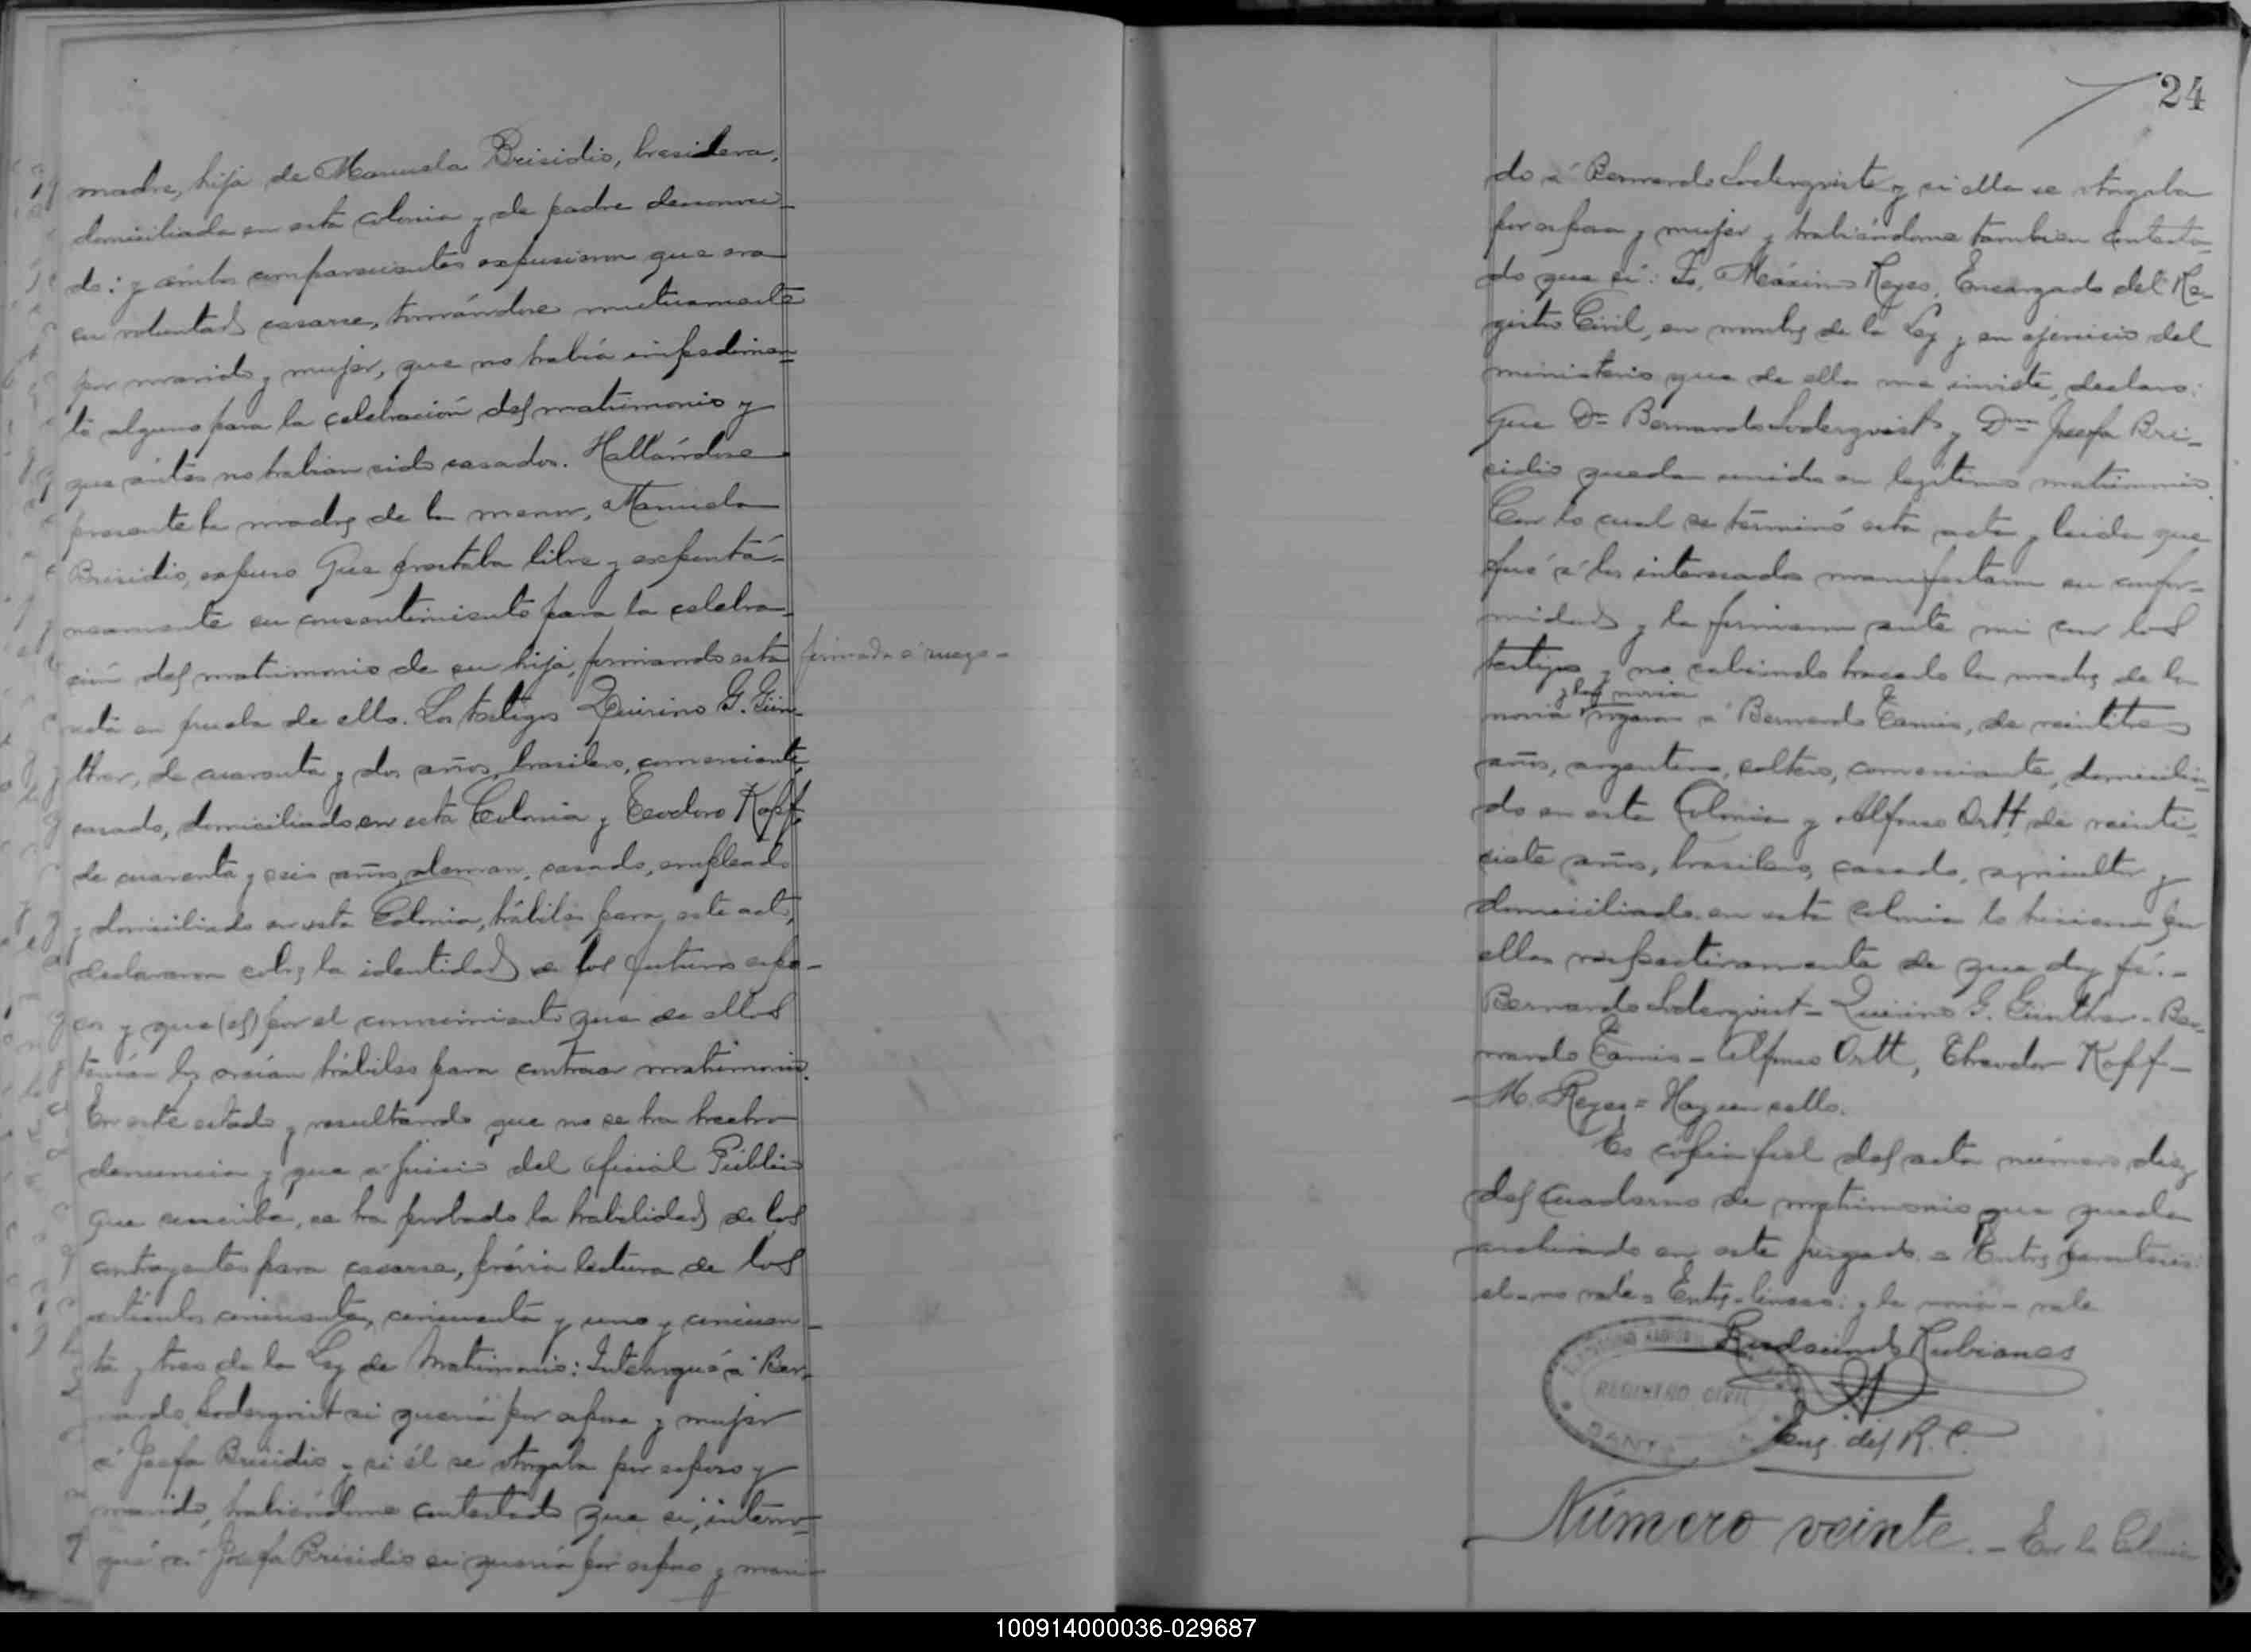 madre, hija de Manuela Brisidio, brasilera,
domiciliada en esta colonia y de padre desconoci-
do: y ámbos comparecientes expusieron que era
su voluntad casarse, tomándose mutuamente
por marido y mujer, que no había impedimen-
to alguno para la celebración del matrimonio y
que ántes no habian sido casados. Hallándose
presente la madre de la menor, Manuela
Brisidio, expuso Que prestaba libre y expontá-
neamente su consentimiento para la celebra-
ción del matrimonio de su hija, firmando esta
firmada á ruego -
acta en prueba de ello. Los testigos Quirino G. Gün-
ther, de cuarenta y dos años, brasilero, comerciante,
casado, domiciliado en esta Colonia y Teodoro Kopff,
de cuarenta y seis años, aleman, casado, empleado
y domiciliado en esta Colonia, hábiles para este acto,
declararon sobre la identidad de los futuros espo-
sos y que (el) por el conocimiento que de ellos
tenían los creían hábiles para contraer matrimonio.
En este estado y resultando que no se ha hecho
denuncia y que a juicio del oficial Público
que suscribe, se ha probado la habilidad de los
contrayentes para casarse, prévia lectura de los
artículos cincuenta, cincuenta y uno y cincuen-
ta y tres de la Ley de Matrimonio: Interrogué á Ber-
nardo Soderquist si queria por esposa y mujer
a Josefa Brisidio y si él se otorgaba por esposo y
marido, habiéndome contestado que si, interro-
gué a Josefa Brisidio si queria por esposo y mari-
24
do á Bernardo Soderquist y si ella se otorgaba
por esposa y mujer y habiéndome tambien contesta-
do que si: Yo, Máximo Reyes, Encargado del Re-
gistro Civil, en nombre de la Ley y en ejercicio del
ministerio que de ella me inviste, declaro:
Que Dn Bernardo Soderquist y Dña Josefa Bri-
sidio quedan unidos en legítimo matrimonio.
Con lo cual se terminó esta acta y leida que
fué a los interesados manifestaron su confor-
midad y la firmaron ante mi con los
testigos y no sabiendo hacerlo la madre de la
y la novia
novia rogaron a Bernardo Camis, de veintitres
años, argentino, soltero, comerciante, domicilia-
do en esta Colonia y Alfonso Ortt, de veinti-
siete años, brasilero, casado, agricultor y
domiciliado en esta colonia lo hicieran por
ellas respectivamente de que doy fé. -
Bernardo Soderquist - Quirino G. Günther - Ber-
nardo Camis - Alfonso Ortt, Theodor Kopff -
- M. Reyes = Hay un sello.
Es cópia fiel del acta número diez
del Cuaderno de matrimonio que queda
archivado en este juzgado. = Entre parentesis:
el - no vale = Entre-lineas: y la novia - vale
Rudecindo Rubianes
REGISTRO CIVIL
SANTA
Enc. del R. C.
Número veinte. - En la Colonia
100914000036-029687